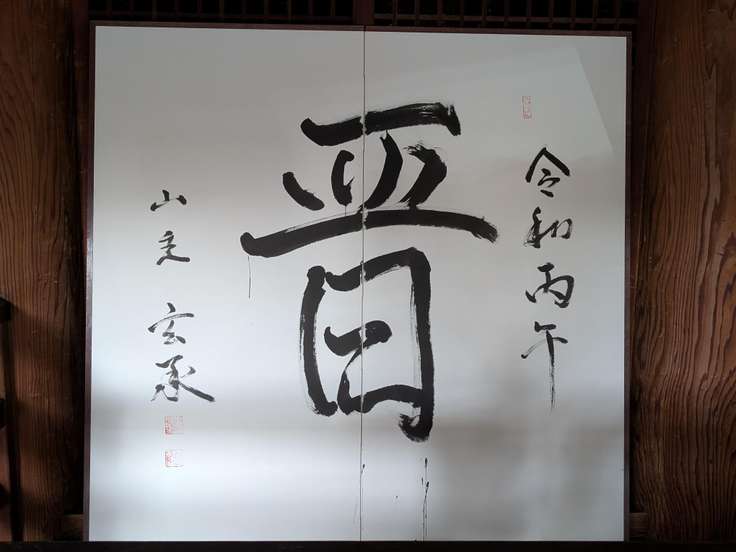 令和丙午
晋
山主 玄承